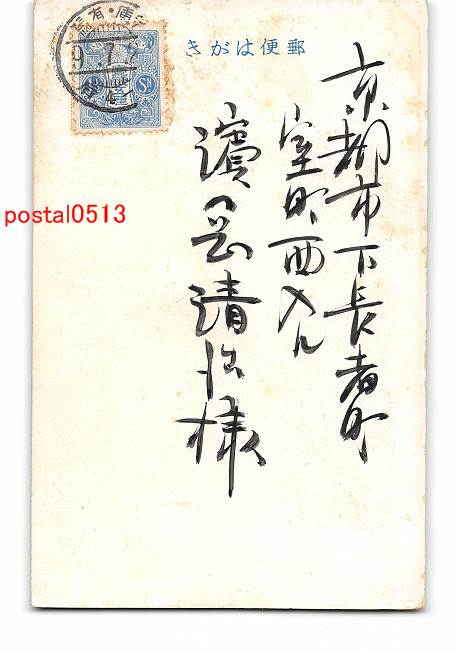 郵便はがき
京都市下長者町
室町西入ル
濱
清
様
postal0513